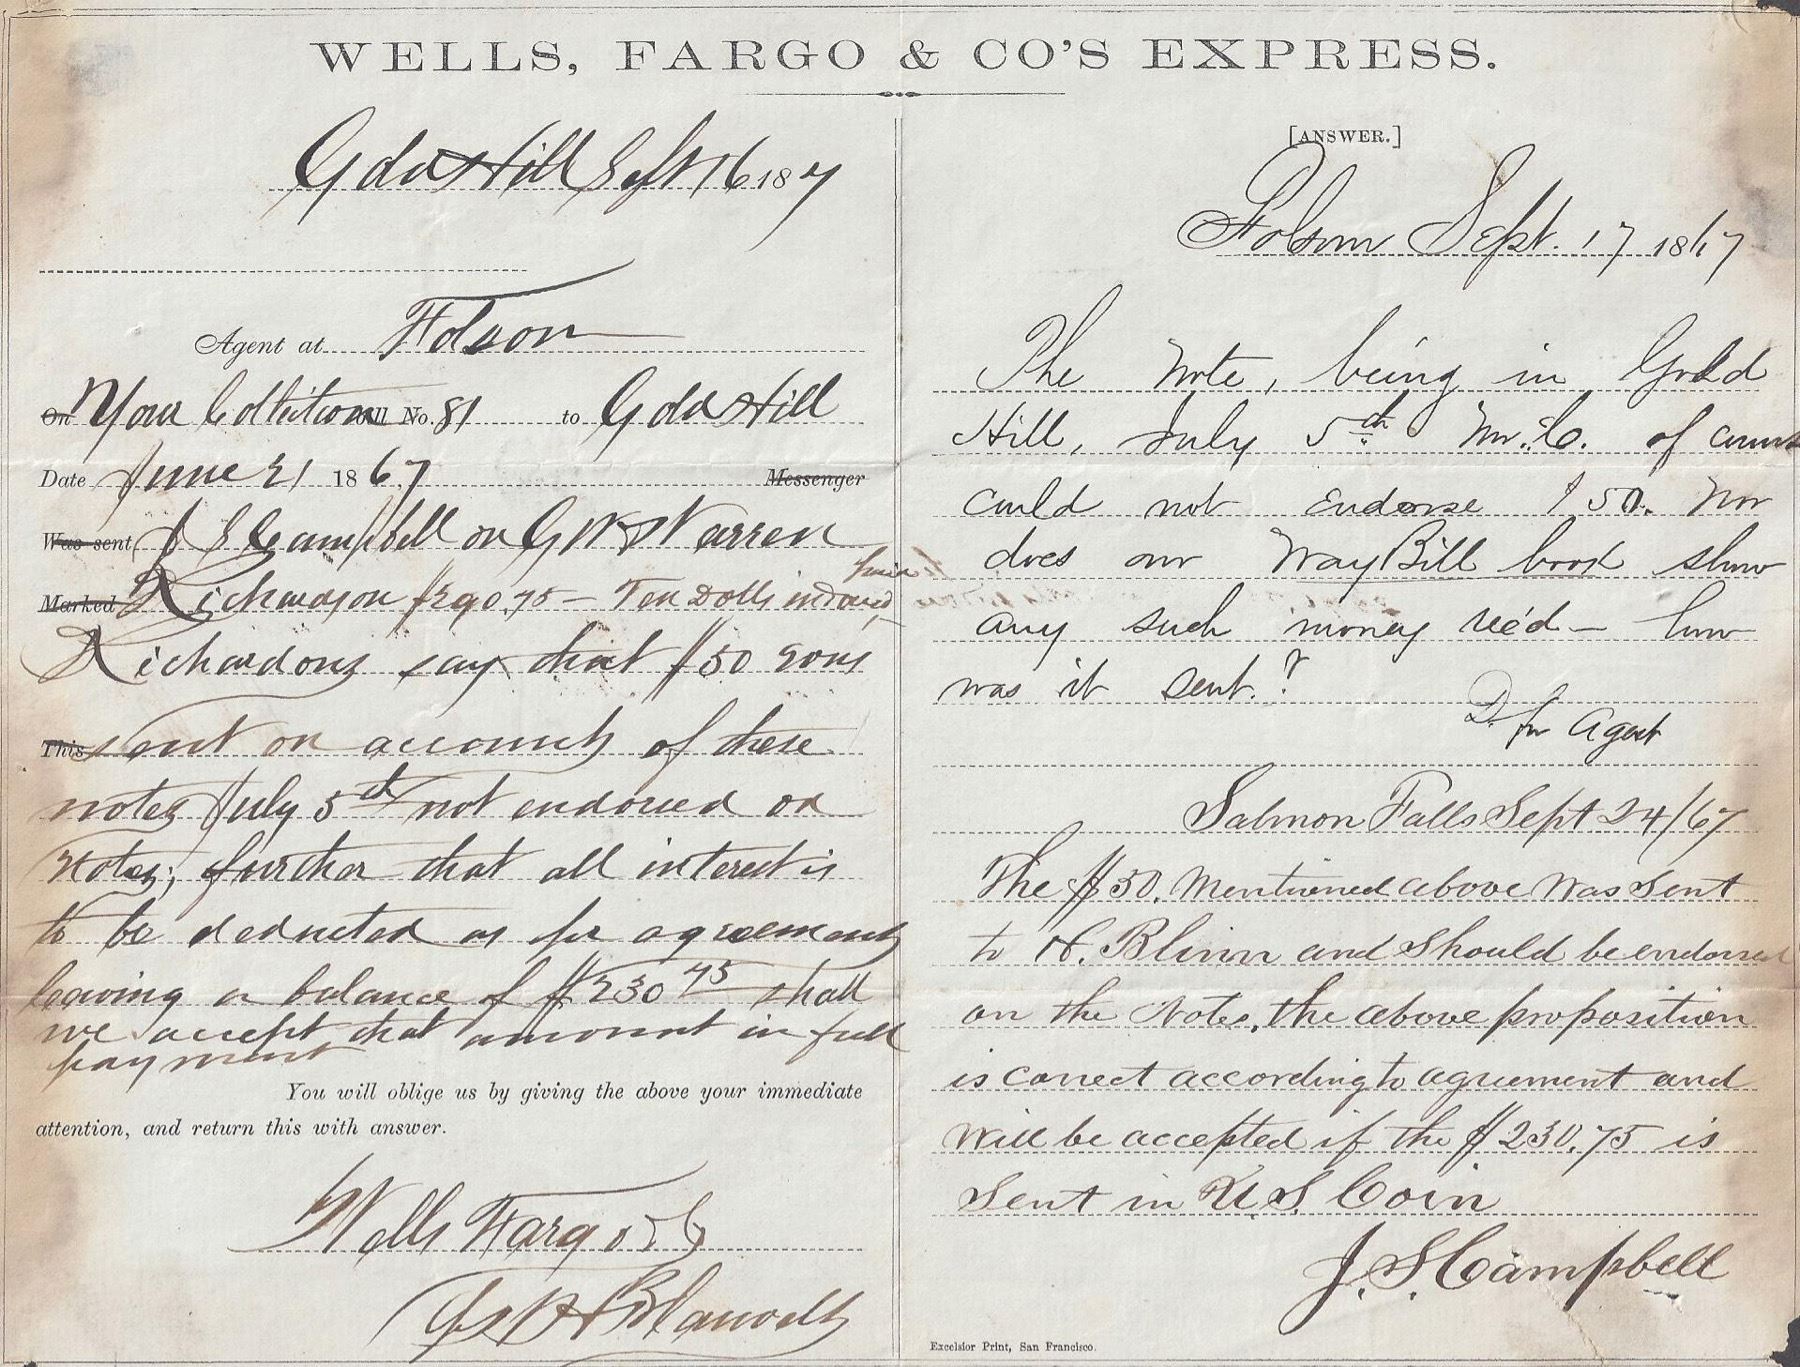 WELLS, FARGO & CO'S EXPRESS.
Gold Hill Sept 16 1867
Agent at Folsom
On Your Collection Bill No. 81 to Gold Hill
Date June 21 1867 Messenger
Was sent J S Campbell on G W Warren
Marked Richardson $290.75 — Ten Dolls indorsed
Richardsons say that $50 was
This sent on account of these
notes July 5th not endorsed on
Notes; further that all interest is
to be deducted as per agreement
leaving a balance of $230 75 shall
we accept that amount in full
payment
You will oblige us by giving the above your immediate
attention, and return this with answer.
Wells Fargo & Co
[ANSWER.]
Folsom Sept. 17 1867
The Note, being in Gold
Hill, July 5th Mr. C. of course
could not Endorse $50. Nor
does our Way Bill book show
any such money rec'd — how
was it sent.?
D. for Agent
Salmon Falls Sept 24/67
The $50. Mentioned above was sent
to H. Blinn and should be endorsed
on the Notes, the above proposition
is correct according to agreement and
will be accepted if the $230.75 is
sent in U S. Coin
J. S. Campbell
Excelsior Print, San Francisco.